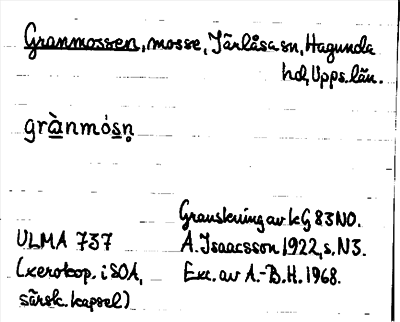 Granmossen, mosse, Järlåsa sn, Hagunda
hd, Upps. län.
grànmósn̥
Granskning av kG 83NO.
ULMA 737
A. Isaacsson 1922, s. N3.
(xerokop. i SOA,
Exc. av A.-B.H. 1968.
särsk. kapsel)